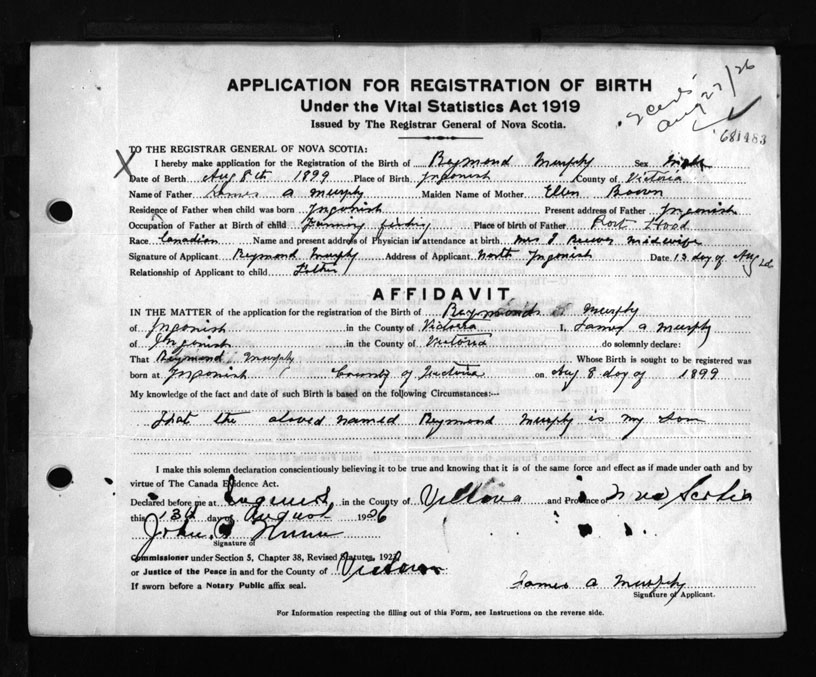 APPLICATION FOR REGISTRATION OF BIRTH
Under the Vital Statistics Act 1919
Issued by The Registrar General of Nova Scotia.
Aug 27/26
681483
TO THE REGISTRAR GENERAL OF NOVA SCOTIA:
X
I hereby make application for the Registration of the Birth of Reymond Murphy Sex Male
Date of Birth Aug 8th 1899 Place of Birth Ingonish County of Victoria
Name of Father James A Murphy Maiden Name of Mother Ellen
Residence of Father when child was born Ingonish Present address of Father Ingonish
Occupation of Father at Birth of child Farming Place of birth of Father Port Hood
Race Canadian Name and present address of Physician in attendance at birth Mrs J midwife
Signature of Applicant Reymond Murphy Address of Applicant North Ingonish Date 13 day of Aug
Relationship of Applicant to child Father
AFFIDAVIT
IN THE MATTER of the application for the registration of the Birth of Reymond Murphy
of Ingonish in the County of Victoria I, James A Murphy
of Ingonish in the County of Victoria do solemnly declare:
That Reymond Murphy Whose Birth is sought to be registered was
born at Ingonish County of Victoria on Aug 8 day of 1899
My knowledge of the fact and date of such Birth is based on the following Circumstances:—
That the aboved named Reymond Murphy is my Son
I make this solemn declaration conscientiously believing it to be true and knowing that it is of the same force and effect as if made under oath and by
virtue of The Canada Evidence Act.
Declared before me at in the County of and Province of Nova Scotia
this 13th day of August 1926
John
Signature of
Commissioner under Section 5, Chapter 38, Revised Statutes, 192
or Justice of the Peace in and for the County of
If sworn before a Notary Public affix seal.
James A Murphy
Signature of Applicant.
For Information respecting the filling out of this Form, see Instructions on the reverse side.